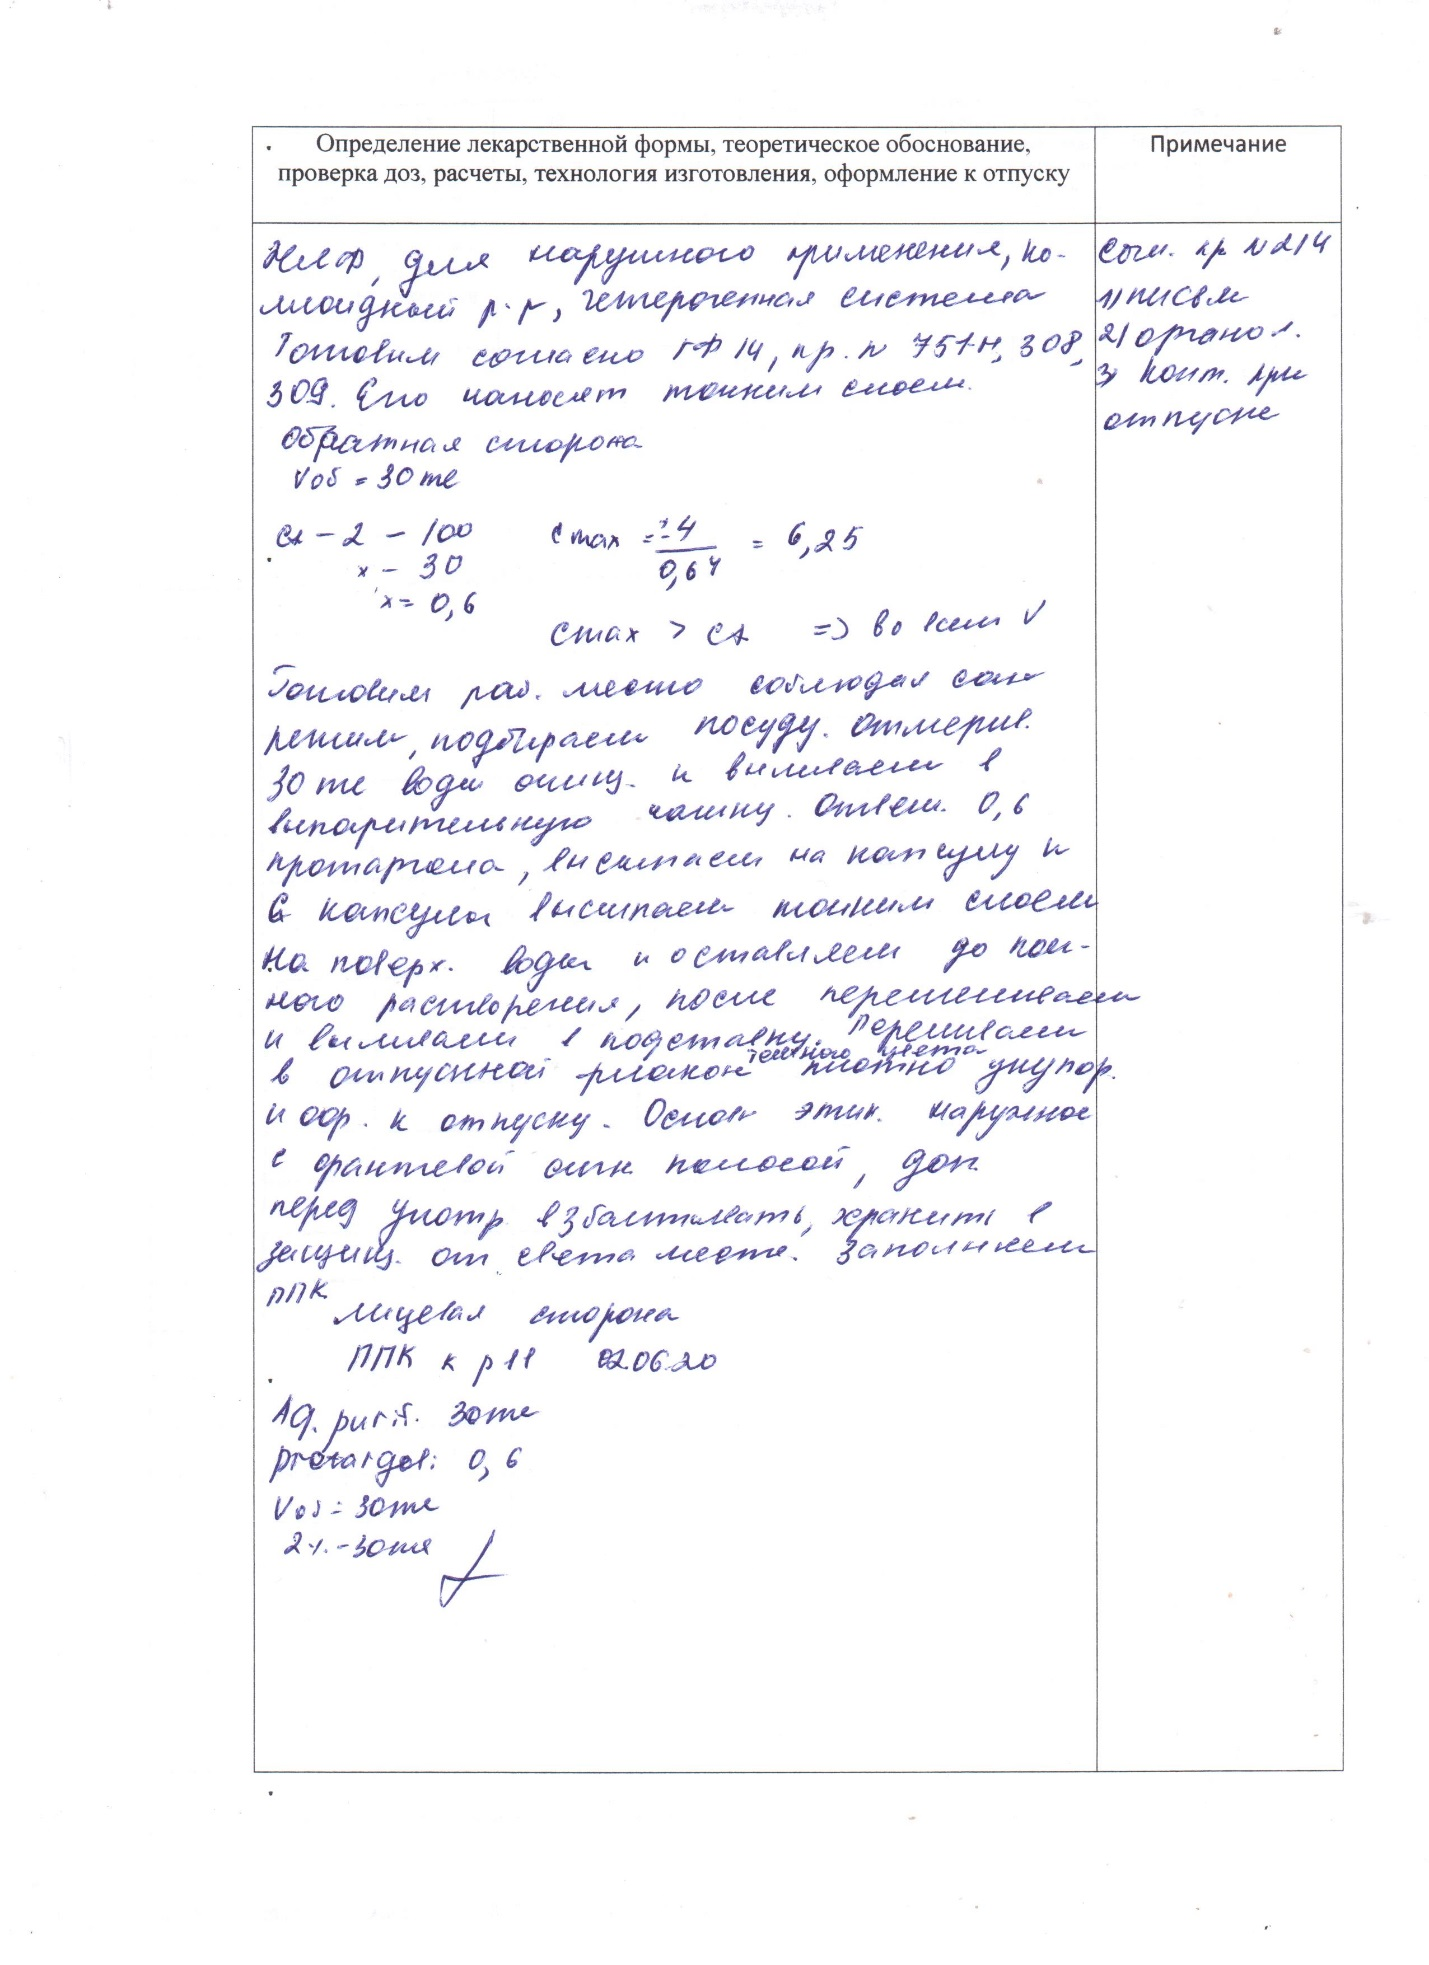 Определение лекарственной формы, теоретическое обоснование,
проверка доз, расчеты, технология изготовления, оформление к отпуску
Примечание
ЖЛФ, для наружного применения, ко-
ллоидный р-р, гетерогенная система
Готовим согласно ГФ 14, пр. N 751н, 308,
309. Его наносят тонким слоем.
Обратная сторона
Vоб = 30 ml
– 2 – 100
x – 30
x = 0,6
C max = 4 / 0,64 = 6,25
Cmax > => во V
Готовим раб. место соблюдая сан
режим, подбираем посуду. Отмерив.
30 ml воды очищ. и выливаем в
выпарительную чашку. Отвеш. 0,6
протаргола, высыпаем на капсулу и
с капсулы высыпаем тонким слоем
на поверх. воды и оставляем до пол-
ного растворения, после перемешиваем
и выливаем в подставку. Переливаем
в отпускной флакон темного цвета плотно укупор.
и офр. к отпуску. Основ этик. наружное
с оранжевой сигн полосой, доп
перед употр взбалтывать, хранить в
защищ. от света месте. Заполняем
ППК
лицевая сторона
ППК к р 11 020620
Aq. purif. 30ml
protargoli 0,6
Vоб = 30ml
2% – 30ml
Согл. пр N 214
1) письм
2) органол.
3) конт. при
отпуске